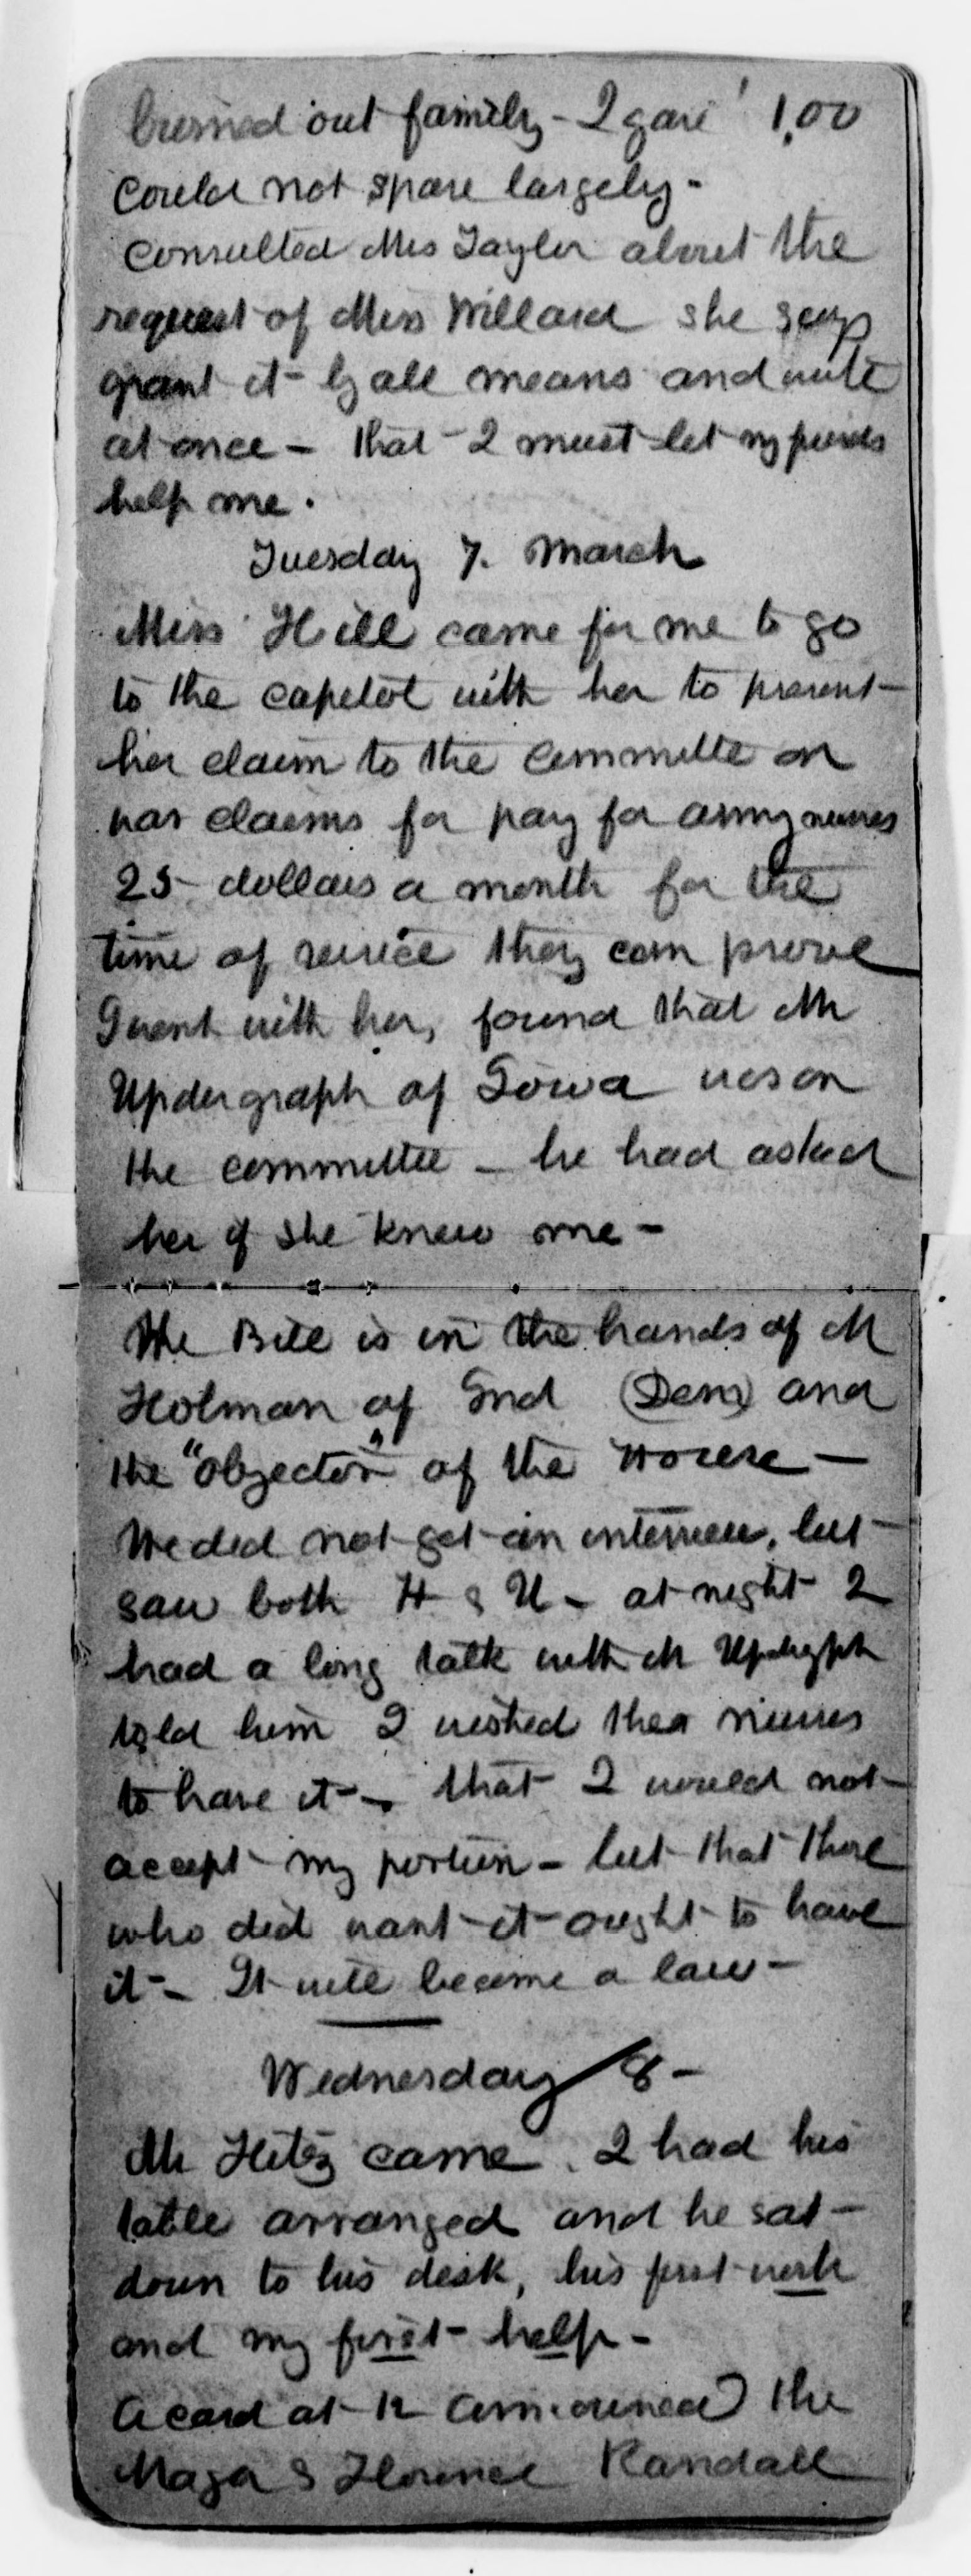 burned out family - I gave 1.00
could not spare largely -
consulted Mrs Taylor about the
request of Miss Willard she says
grant it - by all means and write
at once - that I must let my friends
help me.
Tuesday 7. March
Miss Hill came for me to go
to the capitol with her to present
her claim to the committe on
war claims for pay for army nurses
25 dollars a month for the
time of service they can prove
I went with her, found that Mr
Updergraph of Iowa was on
the committee - he had asked
her if she knew me -
The Bill is in the hands of M
Holman of Ind (Dem) and
the "objector" of the House -
We did not get an interview, but
saw both H & U - at night I
had a long talk with Mr Updegph
told him I wished the nurses
to have it - that I would not
accept my portion - but that those
who did want it ought to have
it - It will become a law -
Wednesday 8 -
Mr Hitz came. I had his
table arranged and he sat
down to his desk, his first work
and my first help -
A card at 12 announced the
Maga & Florence Randall